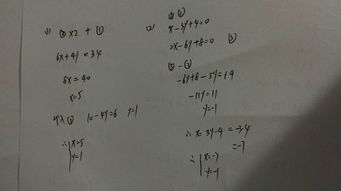 (1) ②×2 + ①
6x+4y=34
8x=40
x=5
代入② 10-4y=6 y=1
∴ { x=5
y=1
(2) 由①
x-3y+4=0
2x-6y+8=0 ③
③-②
-6y+8-5y=19
-11y=11
y=-1
∴ x=3y-4=-3-4
=-7
∴ { x=-7
y=-1